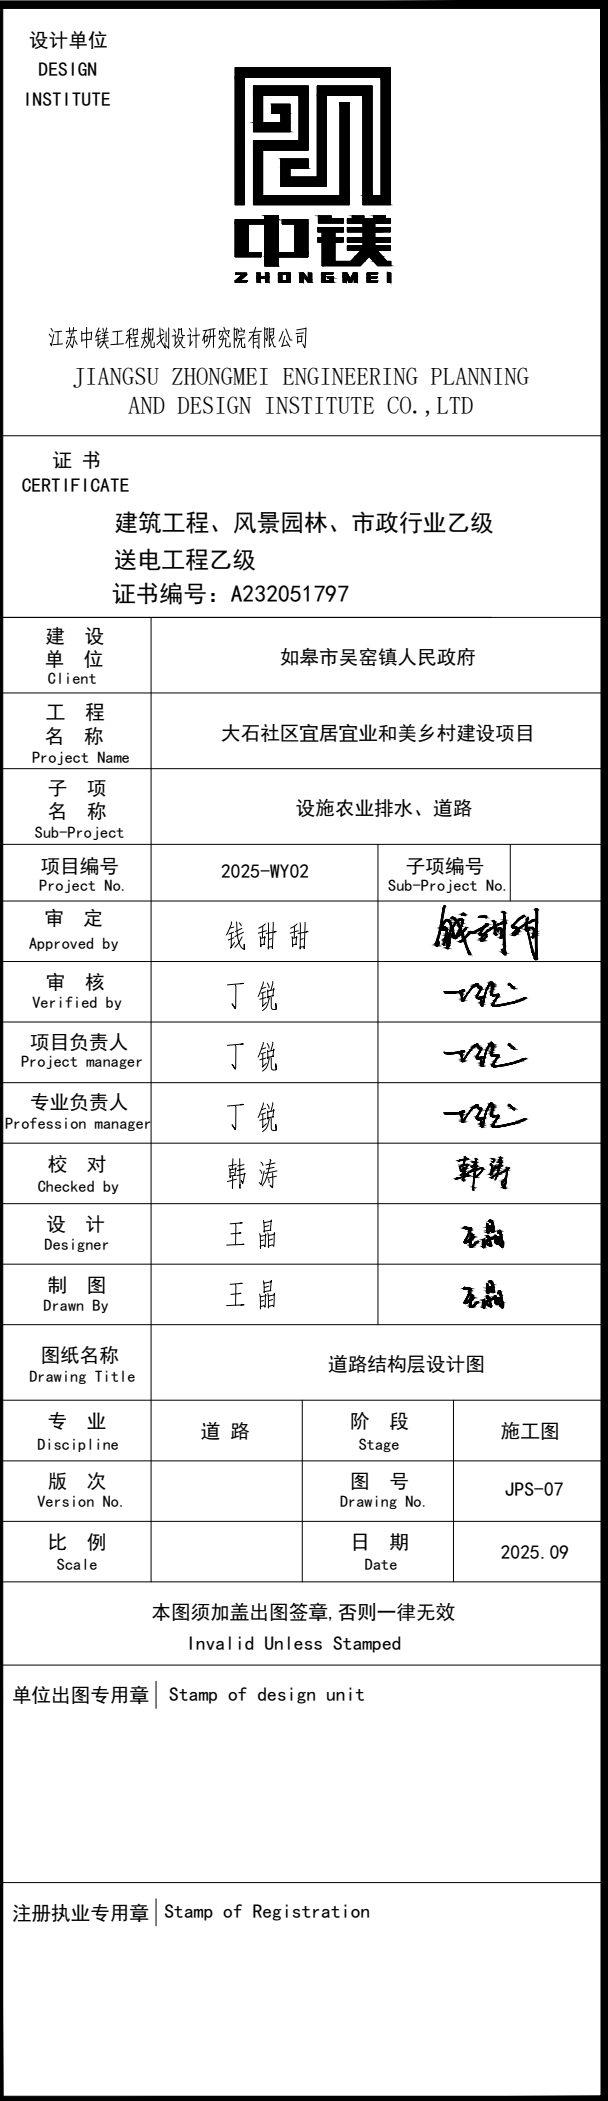 设计单位
DESIGN
INSTITUTE
中镁
ZHONGMEI
江苏中镁工程规划设计研究院有限公司
JIANGSU ZHONGMEI ENGINEERING PLANNING
AND DESIGN INSTITUTE CO.,LTD
证 书
CERTIFICATE
建筑工程、风景园林、市政行业乙级
送电工程乙级
证书编号：A232051797
建 设
单 位
Client
如皋市吴窑镇人民政府
工 程
名 称
Project Name
大石社区宜居宜业和美乡村建设项目
子 项
名 称
Sub-Project
设施农业排水、道路
项目编号
Project No.
2025-WY02
子项编号
Sub-Project No.
审 定
Approved by
钱 甜 甜
钱甜甜
审 核
Verified by
丁 锐
丁锐
项目负责人
Project manager
丁 锐
丁锐
专业负责人
Profession manager
丁 锐
丁锐
校 对
Checked by
韩 涛
韩涛
设 计
Designer
王 晶
王晶
制 图
Drawn By
王 晶
王晶
图纸名称
Drawing Title
道路结构层设计图
专 业
Discipline
道 路
阶 段
Stage
施工图
版 次
Version No.
图 号
Drawing No.
JPS-07
比 例
Scale
日 期
Date
2025.09
本图须加盖出图签章,否则一律无效
Invalid Unless Stamped
单位出图专用章 Stamp of design unit
注册执业专用章 Stamp of Registration